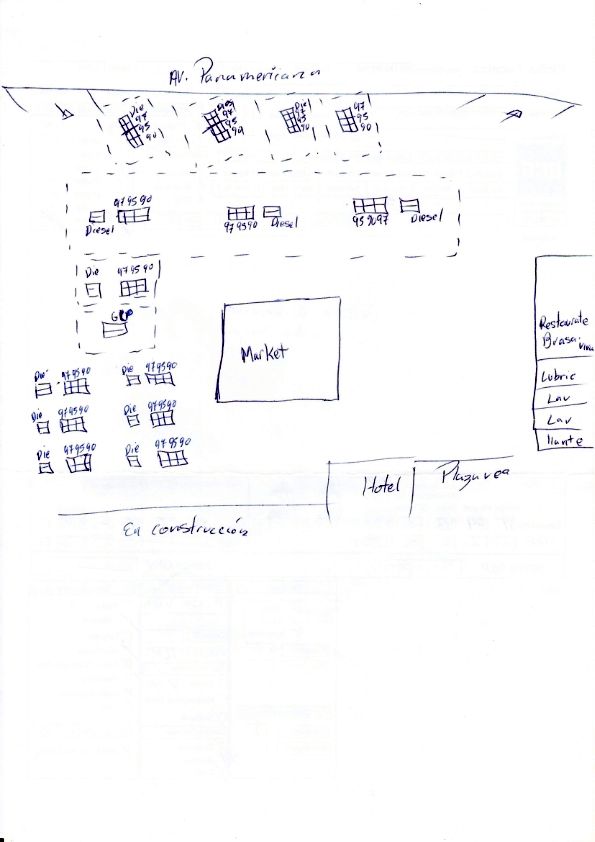 AV. Panamericana
Die
97
95
90
Dies
97
95
90
Diel
97
95
90
97
95
90
97 95 90
Diesel
97 95 90
Diesel
95 90 97
Diesel
Die
97 95 90
GLP
Market
Die
97 95 90
Die
97 95 90
Die
97 95 90
Die
97 95 90
Die
97 95 90
Die
97 95 90
Restaurate
Brasa viva
Lubric
Lav
Lav
llante
Hotel
Plazavea
En construcción